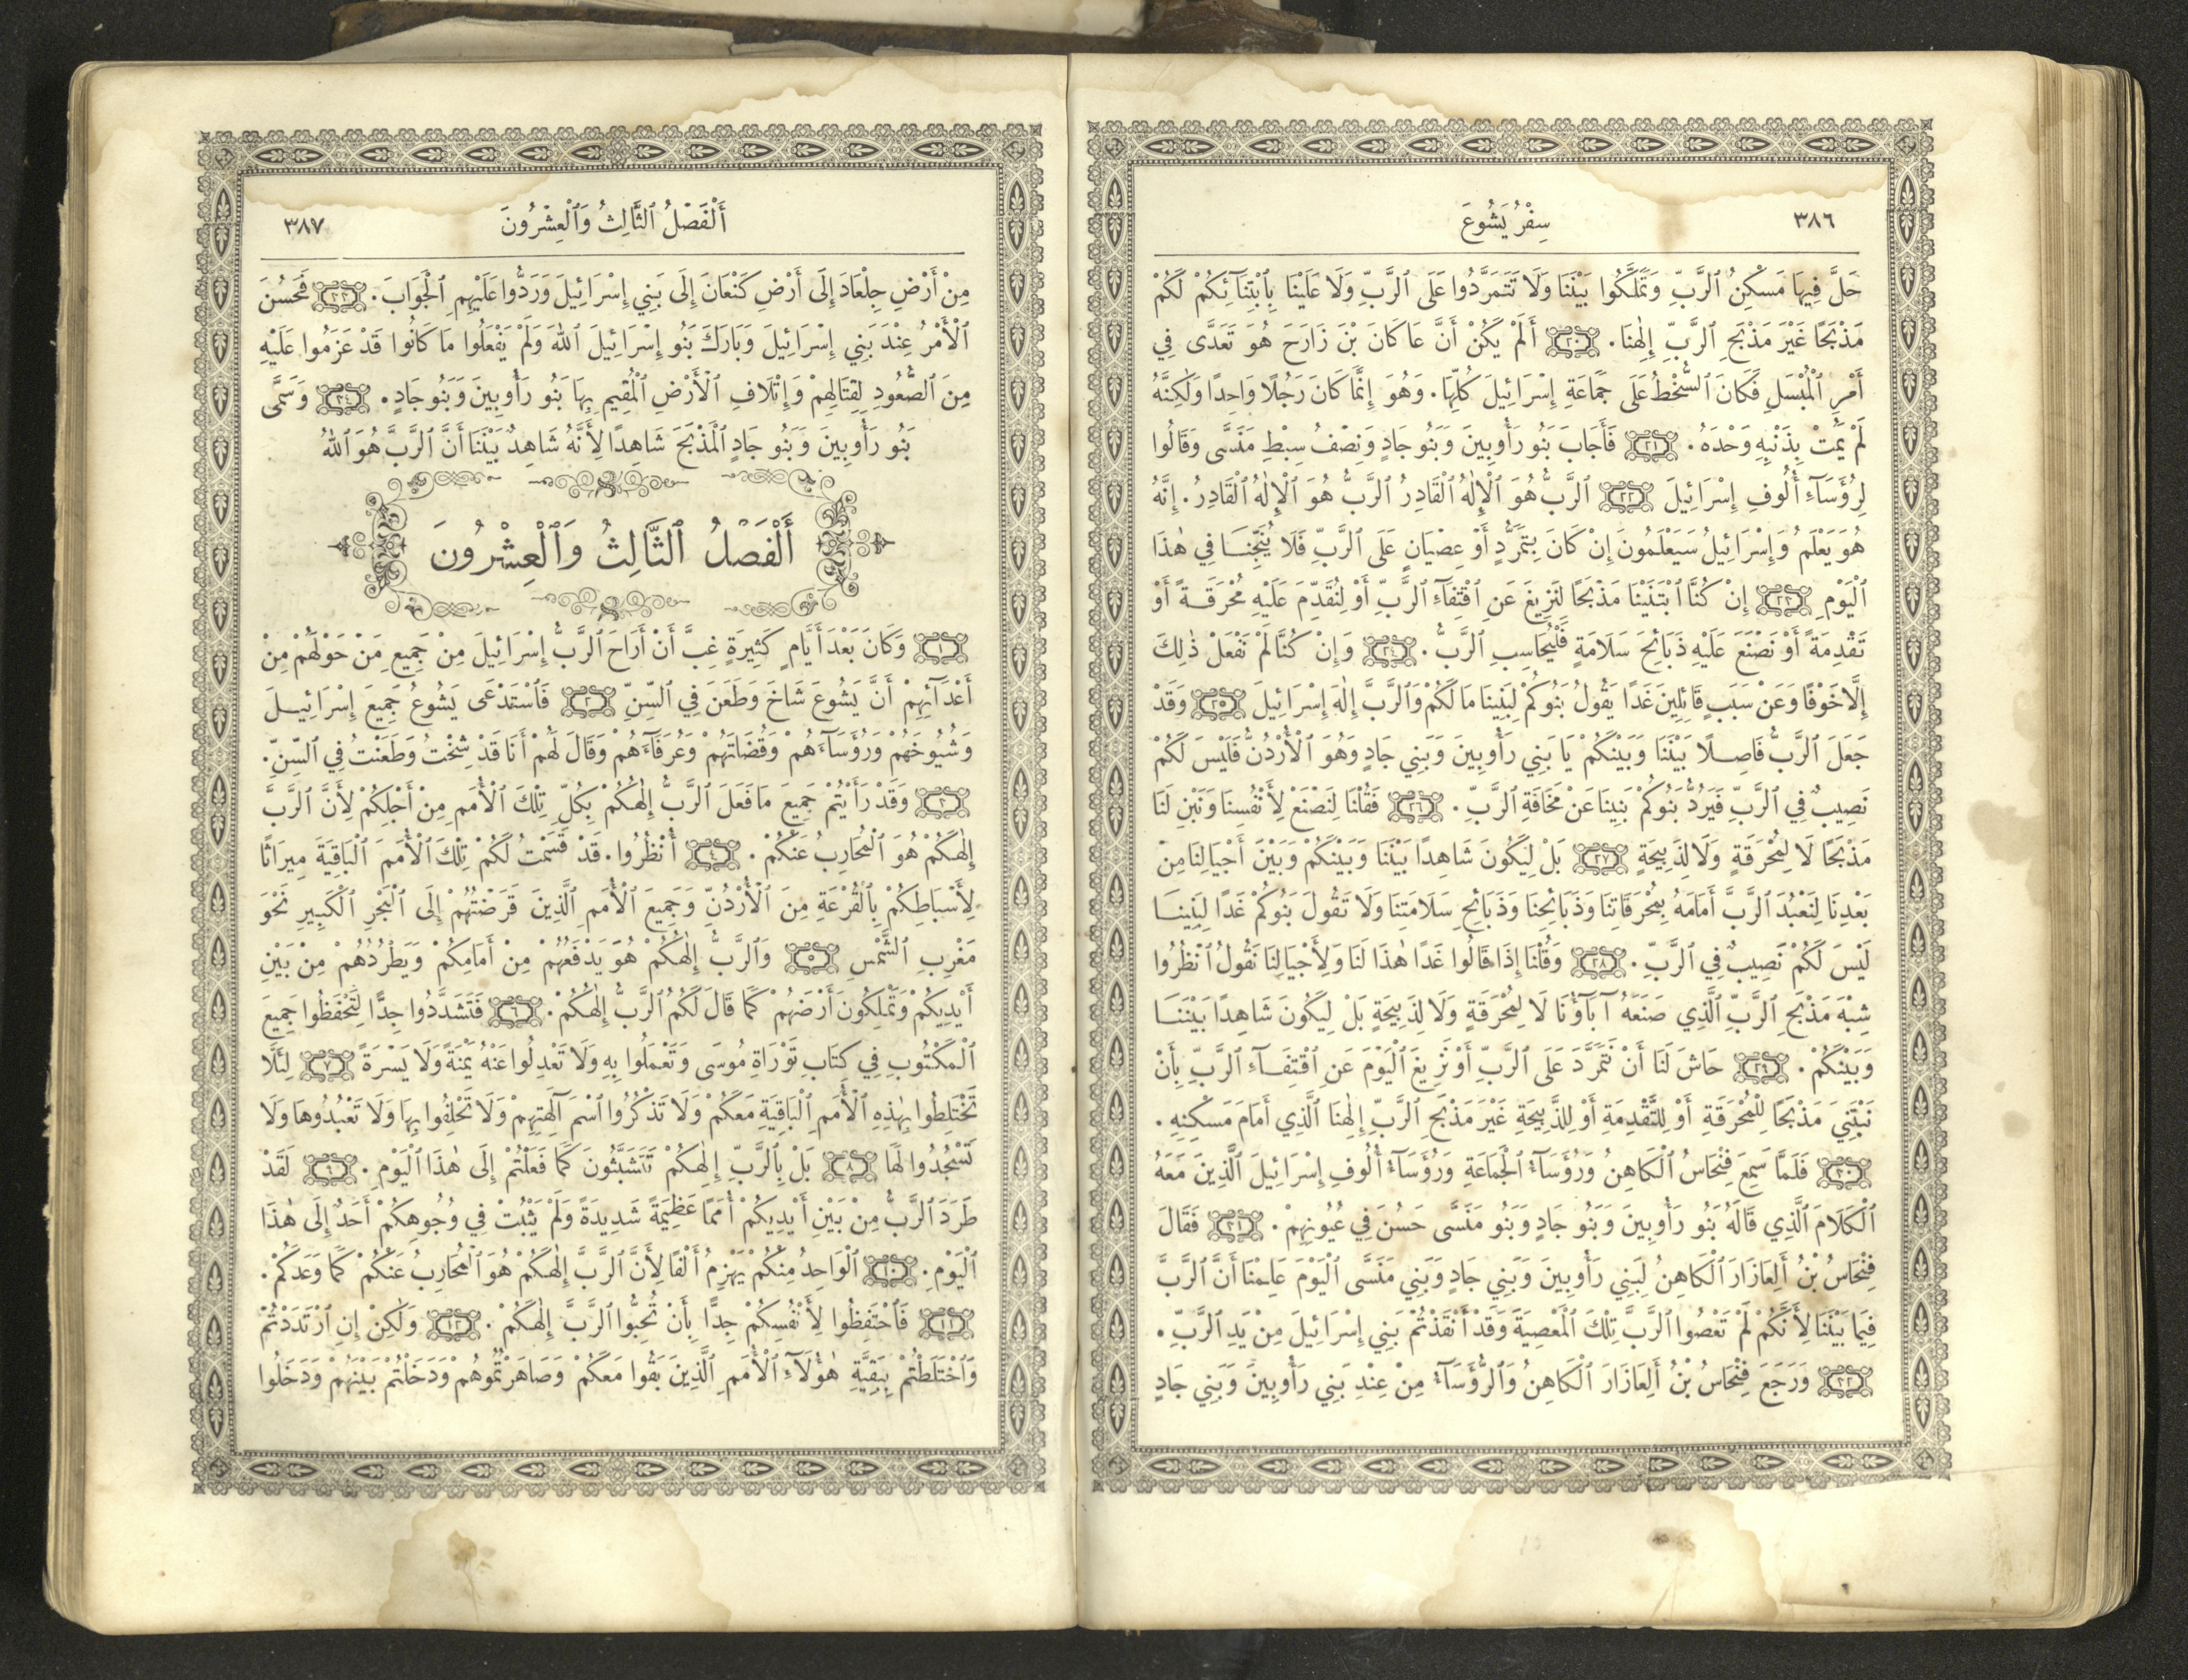 ٣٨٦
سِفْرُ يَشُوعَ
حَلَّ فِيهَا مَسْكِنُ ٱلرَّبِّ وَتَمَلَّكُوا بَيْنَنَا وَلَا تَتَمَرَّدُوا عَلَى ٱلرَّبِّ وَلَا عَلَيْنَا بِٱبْتِنَآئِكُمْ لَكُمْ
مَذْبَحًا غَيْرَ مَذْبَحِ ٱلرَّبِّ إِلٰهِنَا. ٢٠ أَلَمْ يَكُنْ أَنَّ عَاكَانَ بْنَ زَارَحَ هُوَ تَعَدَّى فِي
أَمْرِ ٱلْمُبْسَلِ فَكَانَ ٱلسُّخْطُ عَلَى جَمَاعَةِ إِسْرَائِيلَ كُلِّهَا. وَهُوَ إِنَّمَا كَانَ رَجُلًا وَاحِدًا وَلٰكِنَّهُ
لَمْ يَمُتْ بِذَنْبِهِ وَحْدَهُ. ٢١ فَأَجَابَ بَنُو رَأُوبِينَ وَبَنُو جَادٍ وَنِصْفُ سِبْطِ مَنَسَّى وَقَالُوا
لِرُؤَسَآءِ أُلُوفِ إِسْرَائِيلَ ٢٢ ٱلرَّبُّ هُوَ ٱلْإِلٰهُ ٱلْقَادِرُ ٱلرَّبُّ هُوَ ٱلْإِلٰهُ ٱلْقَادِرُ. إِنَّهُ
هُوَ يَعْلَمُ وَإِسْرَائِيلُ سَيَعْلَمُونَ إِنْ كَانَ بِتَمَرُّدٍ أَوْ عِصْيَانٍ عَلَى ٱلرَّبِّ فَلَا يُنَجِّنَا فِي هٰذَا
ٱلْيَوْمِ ٢٣ إِنْ كُنَّا ٱبْتَنَيْنَا مَذْبَحًا لِنَزِيغَ عَنِ ٱقْتِفَآءِ ٱلرَّبِّ أَوْ لِنُقَدِّمَ عَلَيْهِ مُحْرَقَةً أَوْ
تَقْدِمَةً أَوْ نَصْنَعَ عَلَيْهِ ذَبَائِحَ سَلَامَةٍ فَلْيُحَاسِبِ ٱلرَّبُّ. ٢٤ وَإِنْ كُنَّا لَمْ نَفْعَلْ ذٰلِكَ
إِلَّا خَوْفًا وَعَنْ سَبَبٍ قَائِلِينَ غَدًا يَقُولُ بَنُوكُمْ لِبَنِينَا مَا لَكُمْ وَٱلرَّبَّ إِلٰهَ إِسْرَائِيلَ ٢٥ وَقَدْ
جَعَلَ ٱلرَّبُّ فَاصِلًا بَيْنَنَا وَبَيْنَكُمْ يَا بَنِي رَأُوبِينَ وَبَنِي جَادٍ وَهُوَ ٱلْأُرْدُنُّ فَلَيْسَ لَكُمْ
نَصِيبٌ فِي ٱلرَّبِّ فَيَرُدُّ بَنُوكُمْ بَنِينَا عَنْ مَخَافَةِ ٱلرَّبِّ. ٢٦ فَقُلْنَا لِنَصْنَعْ لِأَنْفُسِنَا وَنَبْنِ لَنَا
مَذْبَحًا لَا لِمُحْرَقَةٍ وَلَا لِذَبِيحَةٍ ٢٧ بَلْ لِيَكُونَ شَاهِدًا بَيْنَنَا وَبَيْنَكُمْ وَبَيْنَ أَجْيَالِنَا مِنْ
بَعْدِنَا لِنَعْبُدَ ٱلرَّبَّ أَمَامَهُ بِمُحْرَقَاتِنَا وَذَبَائِحِنَا وَذَبَائِحِ سَلَامَتِنَا وَلَا تَقُولَ بَنُوكُمْ غَدًا لِبَنِينَا
لَيْسَ لَكُمْ نَصِيبٌ فِي ٱلرَّبِّ. ٢٨ وَقُلْنَا إِذَا قَالُوا غَدًا هٰذَا لَنَا وَلِأَجْيَالِنَا نَقُولُ ٱنْظُرُوا
شِبْهَ مَذْبَحِ ٱلرَّبِّ ٱلَّذِي صَنَعَهُ آبَآؤُنَا لَا لِمُحْرَقَةٍ وَلَا لِذَبِيحَةٍ بَلْ لِيَكُونَ شَاهِدًا بَيْنَنَا
وَبَيْنَكُمْ. ٢٩ حَاشَ لَنَا أَنْ نَتَمَرَّدَ عَلَى ٱلرَّبِّ أَوْ نَزِيغَ ٱلْيَوْمَ عَنِ ٱقْتِفَآءِ ٱلرَّبِّ بِأَنْ
نَبْتَنِيَ مَذْبَحًا لِلْمُحْرَقَةِ أَوْ لِلتَّقْدِمَةِ أَوْ لِلذَّبِيحَةِ غَيْرَ مَذْبَحِ ٱلرَّبِّ إِلٰهِنَا ٱلَّذِي أَمَامَ مَسْكِنِهِ.
٣٠ فَلَمَّا سَمِعَ فِنْحَاسُ ٱلْكَاهِنُ وَرُؤَسَآءُ ٱلْجَمَاعَةِ وَرُؤَسَآءُ أُلُوفِ إِسْرَائِيلَ ٱلَّذِينَ مَعَهُ
ٱلْكَلَامَ ٱلَّذِي قَالَهُ بَنُو رَأُوبِينَ وَبَنُو جَادٍ وَبَنُو مَنَسَّى حَسُنَ فِي عُيُونِهِمْ. ٣١ فَقَالَ
فِنْحَاسُ بْنُ أَلِعَازَارَ ٱلْكَاهِنُ لِبَنِي رَأُوبِينَ وَبَنِي جَادٍ وَبَنِي مَنَسَّى ٱلْيَوْمَ عَلِمْنَا أَنَّ ٱلرَّبَّ
فِيمَا بَيْنَنَا لِأَنَّكُمْ لَمْ تَعْصُوا ٱلرَّبَّ تِلْكَ ٱلْمَعْصِيَةَ وَقَدْ أَنْقَذْتُمْ بَنِي إِسْرَائِيلَ مِنْ يَدِ ٱلرَّبِّ.
٣٢ وَرَجَعَ فِنْحَاسُ بْنُ أَلِعَازَارَ ٱلْكَاهِنُ وَٱلرُّؤَسَآءُ مِنْ عِنْدِ بَنِي رَأُوبِينَ وَبَنِي جَادٍ
أَلْفَصْلُ ٱلثَّالِثُ وَٱلْعِشْرُونَ
٣٨٧
مِنْ أَرْضِ جِلْعَادَ إِلَى أَرْضِ كَنْعَانَ إِلَى بَنِي إِسْرَائِيلَ وَرَدُّوا عَلَيْهِمِ ٱلْجَوَابَ. ٣٣ فَحَسُنَ
ٱلْأَمْرُ عِنْدَ بَنِي إِسْرَائِيلَ وَبَارَكَ بَنُو إِسْرَائِيلَ ٱللهَ وَلَمْ يَفْعَلُوا مَا كَانُوا قَدْ عَزَمُوا عَلَيْهِ
مِنَ ٱلصُّعُودِ لِقِتَالِهِمْ وَإِتْلَافِ ٱلْأَرْضِ ٱلْمُقِيمِ بِهَا بَنُو رَأُوبِينَ وَبَنُو جَادٍ. ٣٤ وَسَمَّى
بَنُو رَأُوبِينَ وَبَنُو جَادٍ ٱلْمَذْبَحَ شَاهِدًا لِأَنَّهُ شَاهِدٌ بَيْنَنَا أَنَّ ٱلرَّبَّ هُوَ ٱللهُ
أَلْفَصْلُ ٱلثَّالِثُ وَٱلْعِشْرُونَ
١ وَكَانَ بَعْدَ أَيَّامٍ كَثِيرَةٍ غِبَّ أَنْ أَرَاحَ ٱلرَّبُّ إِسْرَائِيلَ مِنْ جَمِيعِ مَنْ حَوْلَهُمْ مِنْ
أَعْدَآئِهِمْ أَنَّ يَشُوعَ شَاخَ وَطَعَنَ فِي ٱلسِّنِّ ٢ فَٱسْتَدْعَى يَشُوعُ جَمِيعَ إِسْرَائِيلَ
وَشُيُوخَهُمْ وَرُؤَسَآءَهُمْ وَقُضَاتَهُمْ وَعُرَفَآءَهُمْ وَقَالَ لَهُمْ أَنَا قَدْ شِخْتُ وَطَعَنْتُ فِي ٱلسِّنِّ.
٣ وَقَدْ رَأَيْتُمْ جَمِيعَ مَا فَعَلَ ٱلرَّبُّ إِلٰهُكُمْ بِكُلِّ تِلْكَ ٱلْأُمَمِ مِنْ أَجْلِكُمْ لِأَنَّ ٱلرَّبَّ
إِلٰهَكُمْ هُوَ ٱلْمُحَارِبُ عَنْكُمْ. ٤ أُنْظُرُوا. قَدْ قَسَمْتُ لَكُمْ تِلْكَ ٱلْأُمَمَ ٱلْبَاقِيَةَ مِيرَاثًا
لِأَسْبَاطِكُمْ بِٱلْقُرْعَةِ مِنَ ٱلْأُرْدُنِّ وَجَمِيعَ ٱلْأُمَمِ ٱلَّذِينَ قَرَضْتُهُمْ إِلَى ٱلْبَحْرِ ٱلْكَبِيرِ نَحْوَ
مَغْرِبِ ٱلشَّمْسِ ٥ وَٱلرَّبُّ إِلٰهُكُمْ هُوَ يَدْفَعُهُمْ مِنْ أَمَامِكُمْ وَيَطْرُدُهُمْ مِنْ بَيْنِ
أَيْدِيكُمْ وَتَمْلِكُونَ أَرْضَهُمْ كَمَا قَالَ لَكُمُ ٱلرَّبُّ إِلٰهُكُمْ. ٦ فَتَشَدَّدُوا جِدًّا لِتَحْفَظُوا جَمِيعَ
ٱلْمَكْتُوبِ فِي كِتَابِ تَوْرَاةِ مُوسَى وَتَعْمَلُوا بِهِ وَلَا تَعْدِلُوا عَنْهُ يَمْنَةً وَلَا يَسْرَةً ٧ لِئَلَّا
تَخْتَلِطُوا بِهٰذِهِ ٱلْأُمَمِ ٱلْبَاقِيَةِ مَعَكُمْ وَلَا تَذْكُرُوا ٱسْمَ آلِهَتِهِمْ وَلَا تَحْلِفُوا بِهَا وَلَا تَعْبُدُوهَا وَلَا
تَسْجُدُوا لَهَا ٨ بَلْ بِٱلرَّبِّ إِلٰهِكُمْ تَتَشَبَّثُونَ كَمَا فَعَلْتُمْ إِلَى هٰذَا ٱلْيَوْمِ. ٩ لَقَدْ
طَرَدَ ٱلرَّبُّ مِنْ بَيْنِ أَيْدِيكُمْ أُمَمًا عَظِيمَةً شَدِيدَةً وَلَمْ يَثْبُتْ فِي وُجُوهِكُمْ أَحَدٌ إِلَى هٰذَا
ٱلْيَوْمِ. ١٠ ٱلْوَاحِدُ مِنْكُمْ يَهْزِمُ أَلْفًا لِأَنَّ ٱلرَّبَّ إِلٰهَكُمْ هُوَ ٱلْمُحَارِبُ عَنْكُمْ كَمَا وَعَدَكُمْ.
١١ فَٱحْتَفِظُوا لِأَنْفُسِكُمْ جِدًّا بِأَنْ تُحِبُّوا ٱلرَّبَّ إِلٰهَكُمْ. ١٢ وَلٰكِنْ إِنِ ٱرْتَدَدْتُمْ
وَٱخْتَلَطْتُمْ بِبَقِيَّةِ هٰؤُلَآءِ ٱلْأُمَمِ ٱلَّذِينَ بَقُوا مَعَكُمْ وَصَاهَرْتُمُوهُمْ وَدَخَلْتُمْ بَيْنَهُمْ وَدَخَلُوا